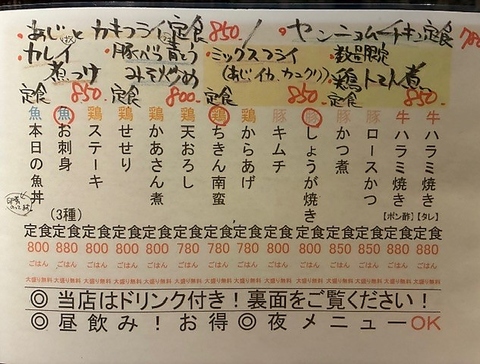 ・あじとカキフライ定食850
・ヤンニョムチキン定食780
・カレイ煮つけ定食850
・豚ばら青とうみそ炒め定食800
・ミックスフライ(あじ、イカ、カニクリ)定食850
・数量限定 鶏トマト煮定食850
魚 本日の魚丼 定食 800 ごはん 大盛り無料
魚 お刺身(3種) 定食 880 ごはん 大盛り無料
鶏 ステーキ 定食 800 ごはん 大盛り無料
鶏 せせり 定食 800 ごはん 大盛り無料
鶏 かあさん煮 定食 800 ごはん 大盛り無料
鶏 天おろし 定食 780 ごはん 大盛り無料
鶏 ちきん南蛮 定食 780 ごはん 大盛り無料
鶏 からあげ 定食 780 ごはん 大盛り無料
豚 キムチ 定食 800 ごはん 大盛り無料
豚 しょうが焼き 定食 800 ごはん 大盛り無料
豚 かつ煮 定食 850 ごはん 大盛り無料
豚 ロースかつ 定食 850 ごはん 大盛り無料
牛 ハラミ焼き【ポン酢】 定食 880 ごはん 大盛り無料
牛 ハラミ焼き【タレ】 定食 880 ごはん 大盛り無料
◎当店はドリンク付き！裏面をご覧ください！
◎昼飲み！お得◎夜メニューOK